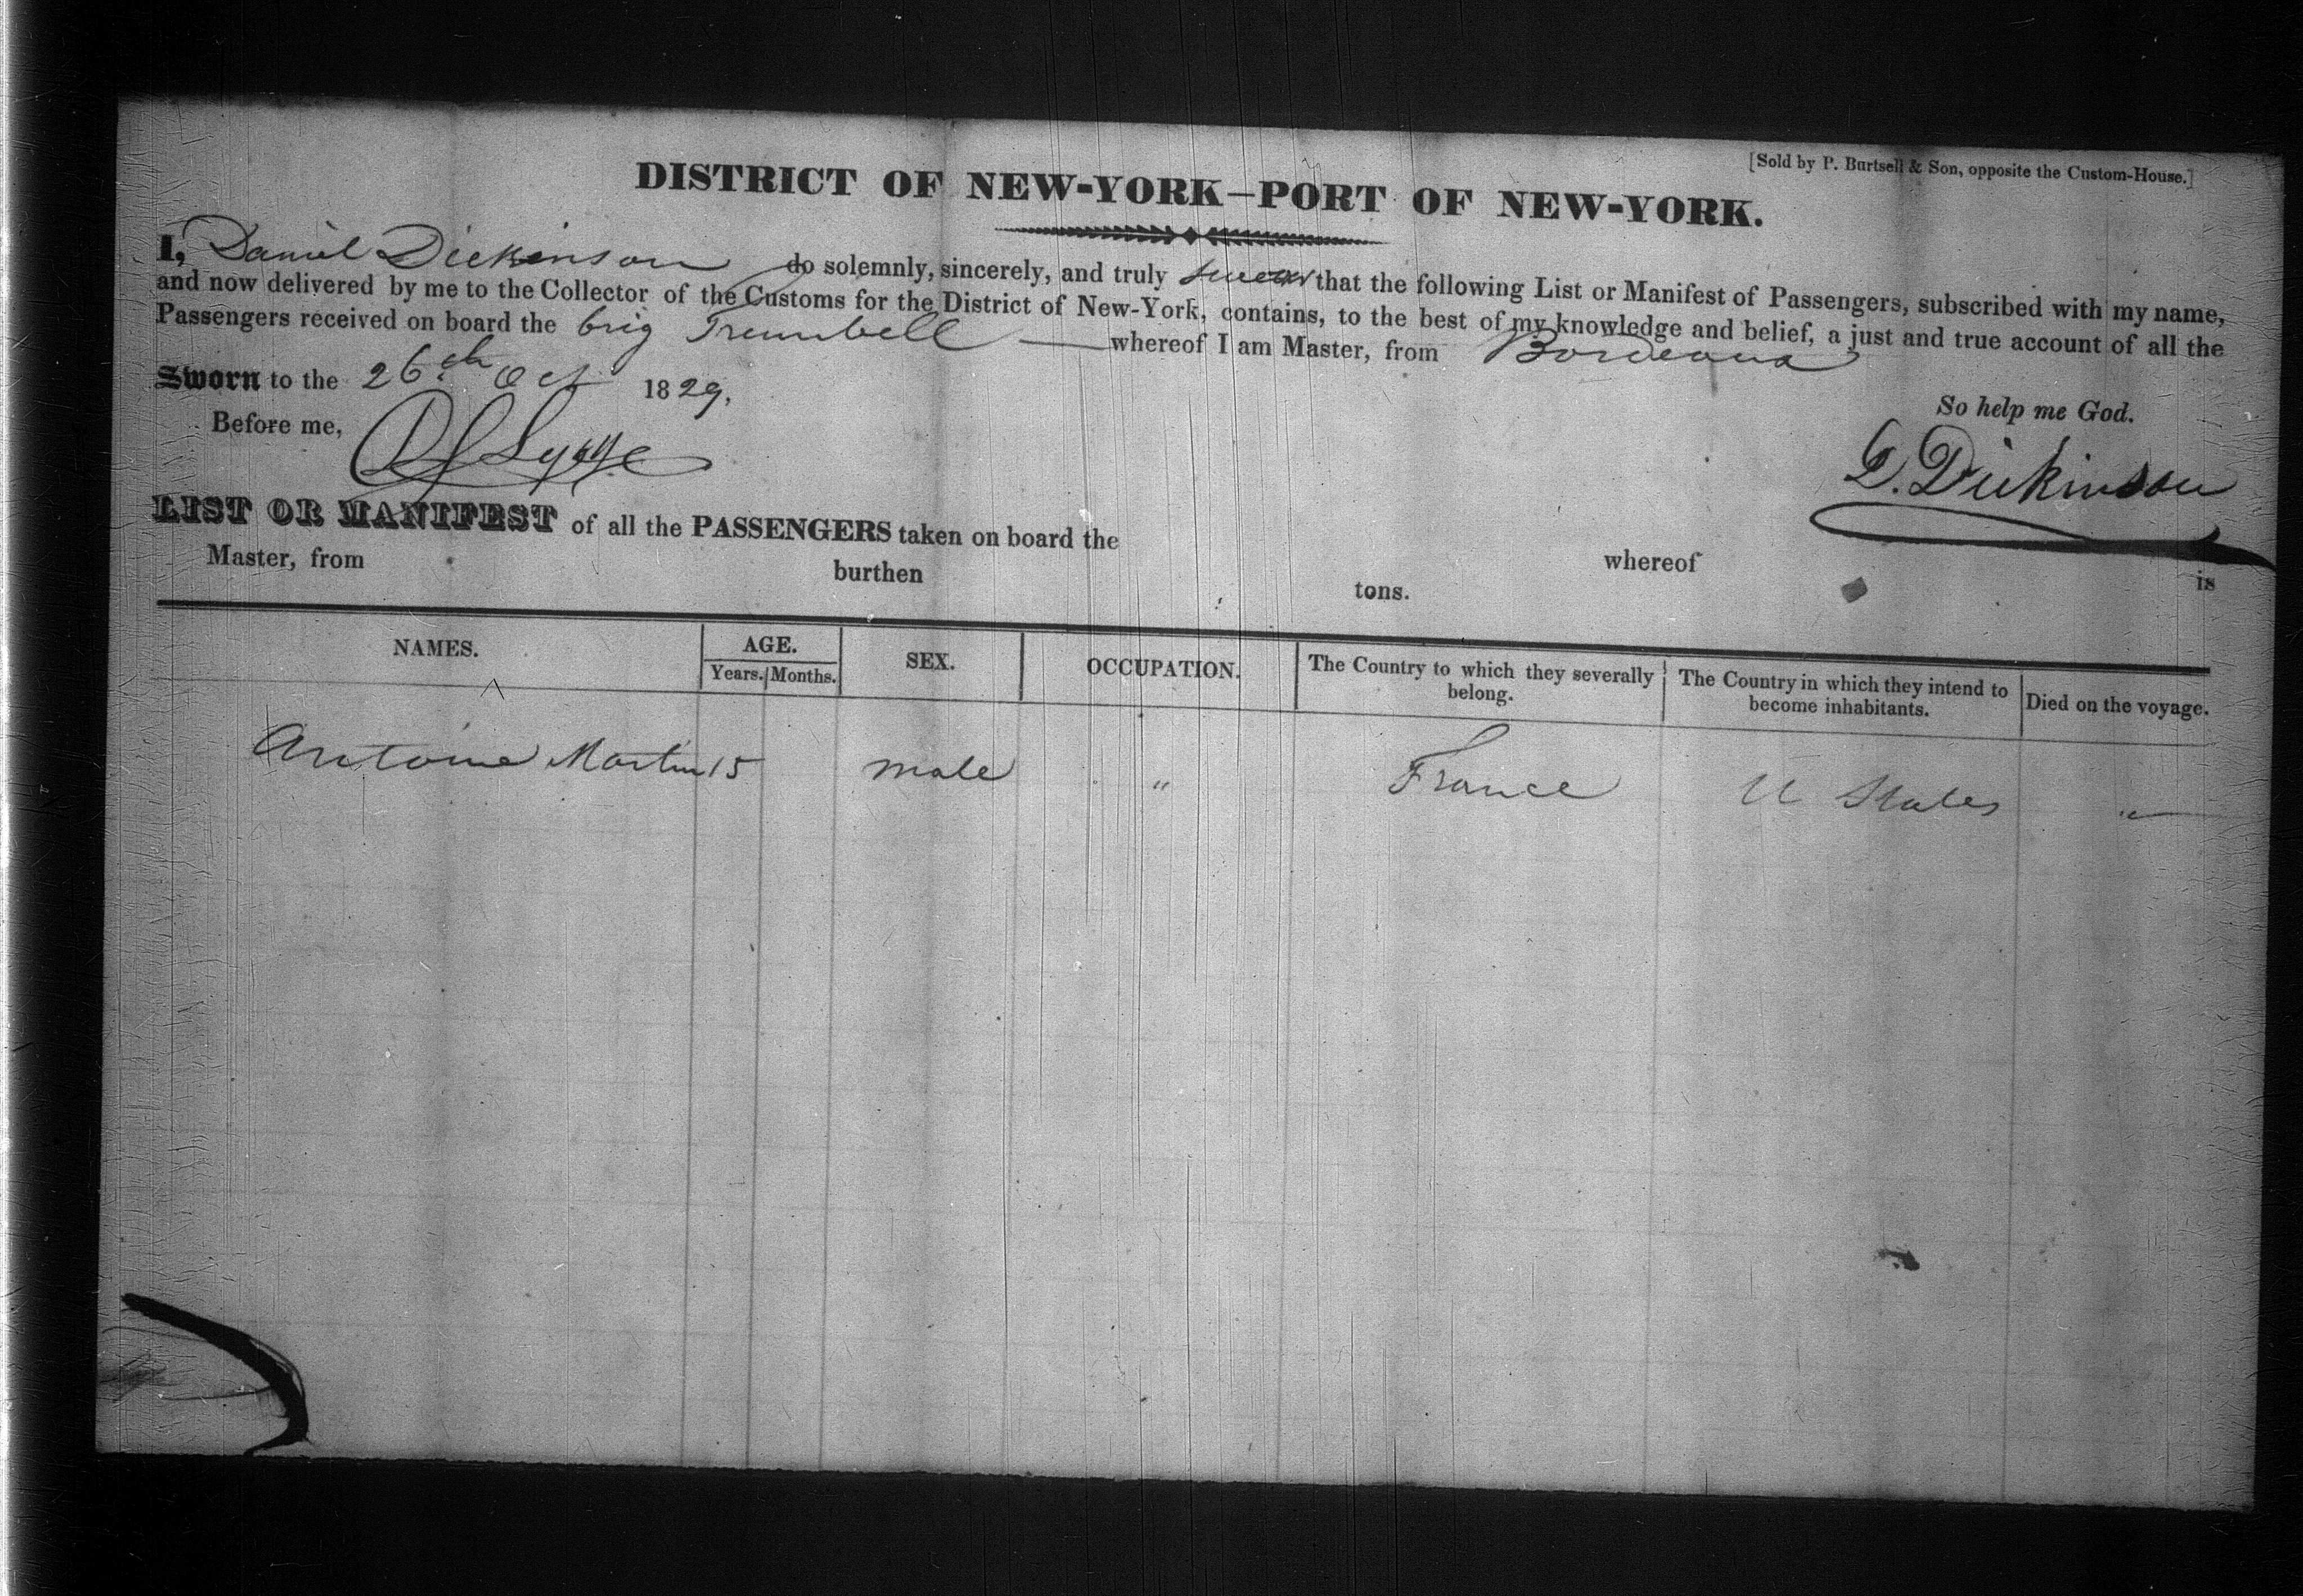 [Sold by P. Burtsell & Son, opposite the Custom-House.]
DISTRICT OF NEW-YORK—PORT OF NEW-YORK.
I, Daniel Dickinson do solemnly, sincerely, and truly swear that the following List or Manifest of Passengers, subscribed with my name,
and now delivered by me to the Collector of the Customs for the District of New-York, contains, to the best of my knowledge and belief, a just and true account of all the
Passengers received on board the brig Trumbell — whereof I am Master, from Bordeaux
Sworn to the 26th Oct 1829,
So help me God.
Before me,
D. Dickinson
LIST OR MANIFEST of all the PASSENGERS taken on board the whereof is
Master, from burthen tons.
NAMES. AGE. SEX. OCCUPATION. The Country to which they severally belong. The Country in which they intend to become inhabitants. Died on the voyage.
Years. Months.
Antoine Martin 15 male " France U States "